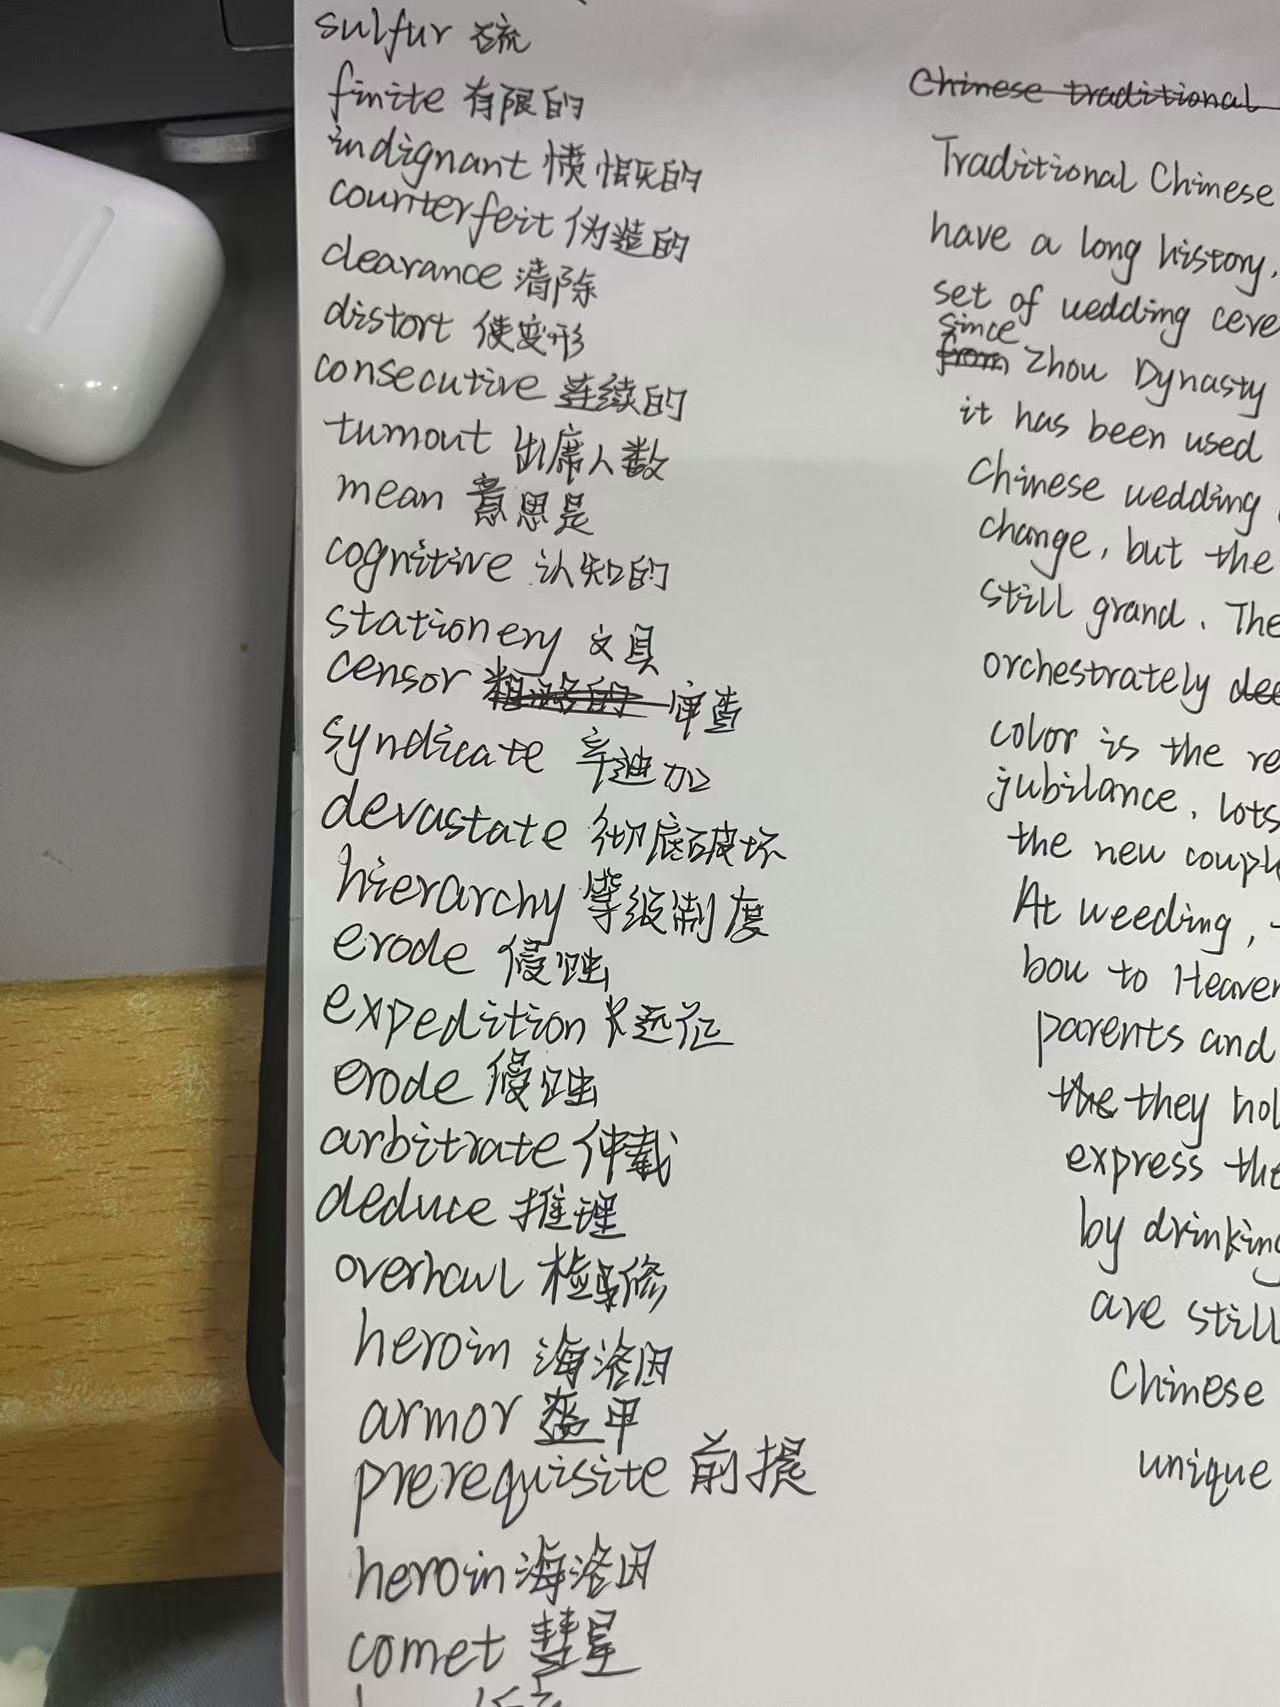 sulfur 硫
finite 有限的
indignant 愤恨的
counterfeit 伪造的
clearance 清除
distort 使变形
consecutive 连续的
turnout 出席人数
mean 意思是
cognitive 认知的
stationery 文具
censor 粗略的 审查
syndicate 辛迪加
devastate 彻底破坏
hierarchy 等级制度
erode 侵蚀
expedition 远征
erode 侵蚀
arbitrate 仲裁
deduce 推理
overhaul 检修
heroin 海洛因
armor 盔甲
prerequisite 前提
heroin 海洛因
comet 彗星
Chinese traditional
Traditional Chinese
have a long history.
set of wedding cere
since
from Zhou Dynasty
it has been used
Chinese wedding
change, but the
still grand. The
orchestrately dee
color is the re
jubilance. lots
the new coupl
At weeding,
bow to Heaven
parents and
the they hol
express the
by drinking
are still
Chinese
unique